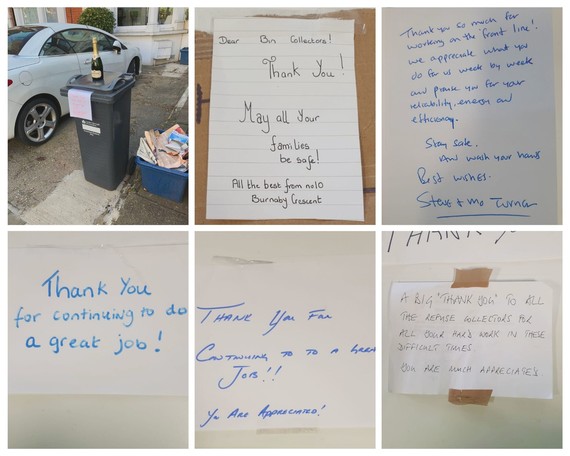 Dear Bin Collectors!
Thank You!
May all your
families
be safe!
All the best from no10
Burnaby Crescent
Thank you so much for
working on the front line!
we appreciate what you
do for us week by week
and praise you for your
reliability, energy and
efficiency.
Stay safe.
And wash your hands
Best wishes.
Steve + Mo Turner
Thank You
for continuing to do
a great job!
THANK YOU FOR
CONTINUING TO TO A GREA
JOB!!
YOU ARE APPRECIATED!
THANK YOU
A BIG "THANK YOU" TO ALL
THE REFUSE COLLECTORS FOR
ALL YOUR HARD WORK IN THESE
DIFFICULT TIMES
YOU ARE MUCH APPRECIATED